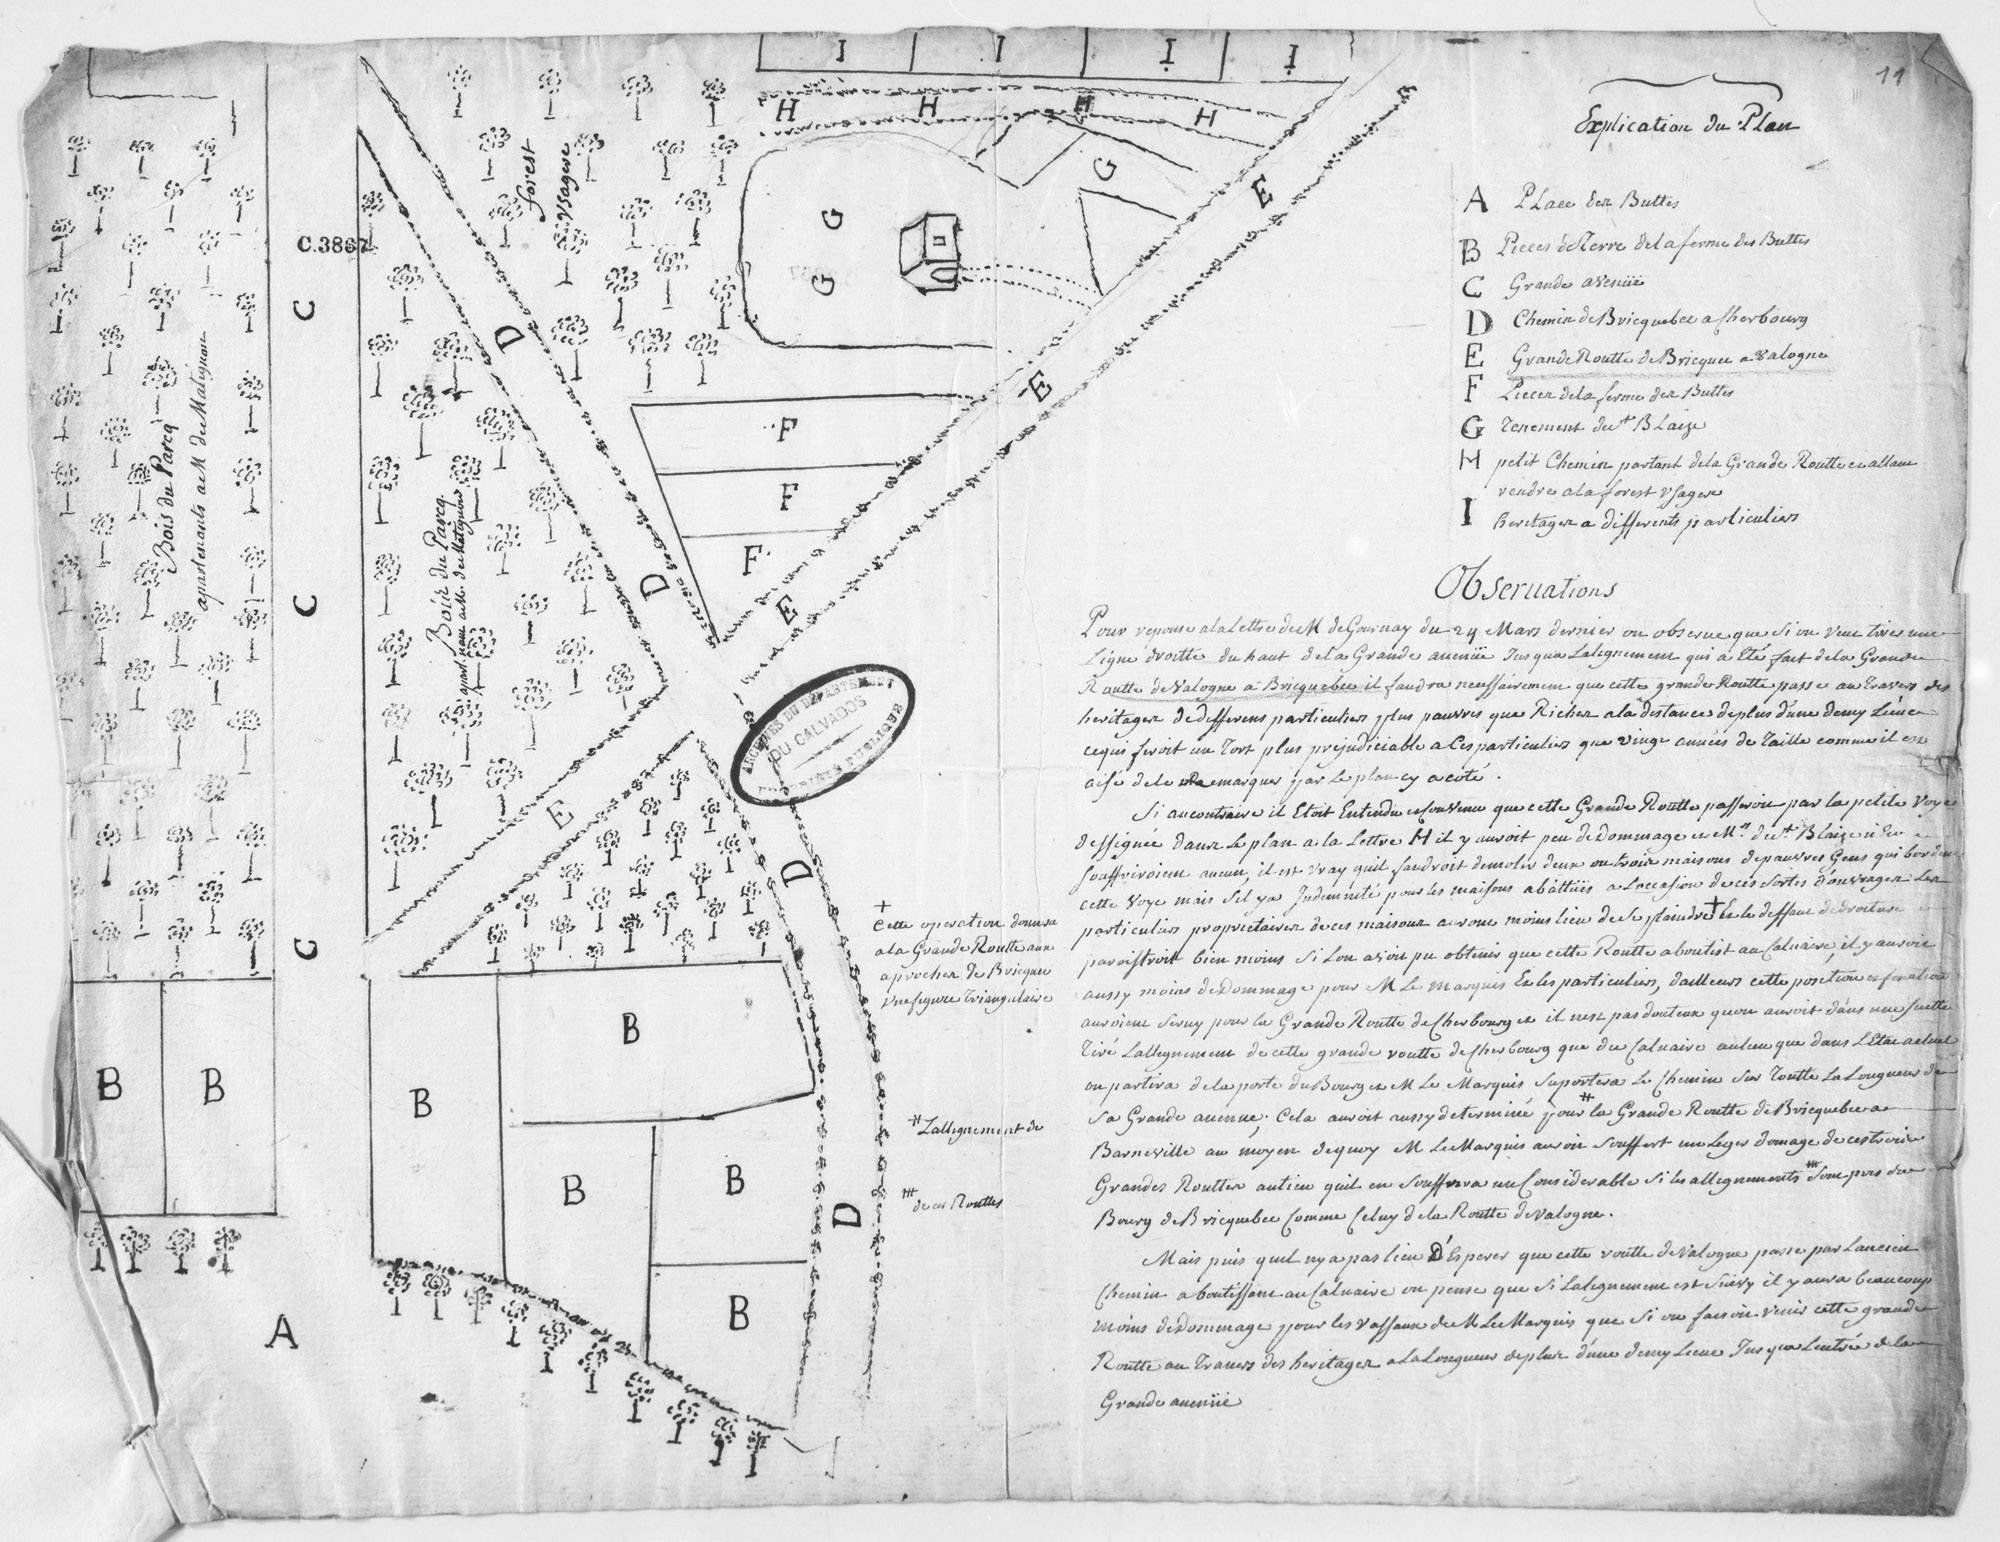 11
Explication du Plan
A Place des Buttes
B Pieces de Terre de la ferme des Buttes
C Grande avenüe
D Chemin de Bricquebec a Cherbourg
E Grande Routte de Bricquec a Valogne
F Pieces de la ferme des Buttes
G Tenement de St Blaize
H petit Chemin partant de la Grande Routte en allant
rendre a la forest Usagere
I heritages a differents particuliers
Observations
Pour reponse a la Lettre de M de Gournay du 24 Mars dernier on observe que Si on veut tirer une
Ligne droitte du haut de la Grande avenüe Jusqua Lalignement qui a Eté fait de la Grande
Routte de Valogne a Bricquebec il faudra nessairement que cette grande Routte passe au Travers des
heritages de differens particuliers plus pauvres que Riches a la distance de plus d'une demy Lieue
ce qui feroit un Tort plus prejudiciable a Ces particuliers que vingt années de Taille comme il est
aisé de le Remarquer par Le plan cy a coté.
Si au contraire il Etoit Entendu et Convenu que cette Grande Routte passeroit par la petite Voye
dessignée dans Le plan a la Lettre H il y auroit peu de Dommage et Mrs de St Blaize n'En
souffriroient aucun, il est vray quil faudroit demolir deux ou trois maisons de pauvres Gens qui bordent
cette Voye mais Sil y a Indemnité pour les maisons abattües a Loccasion de ces Sortes d'ouvrages Les
particuliers proprietaires de ces maisons auront moins lieu de Se plaindre + Et le deffaut de droiture
paroistroit bien moins Si Lon avoit pu obtenir que cette Routte aboutist au Calvaire, il y auroit
aussy moins de Dommage pour M Le Marquis Et les particuliers, dailleurs cette position
auroient Servy pour la Grande Routte de Cherbourg et il nest pas douteux quon auroit dans une suitte
Tiré Lallignement de cette grande routte de Cherbourg que du Calvaire aulieu que dans L'Etat actuel
on partira de la porte du Bourg et M Le Marquis Suportera Le Chemin Sur Toutte La Longueur de
Sa Grande avenue; Cela auroit aussy determiné pour # la Grande Routte de Bricquebec a
Barneville au moyen de quoy M Le Marquis auroit Souffert un Leger domage de ces trois
Grandes Routtes aulieu quil en Souffrira un Considerable Si les allignements ### Sont pris du
Bourg de Bricquebec Comme Celuy de la Routte de Valogne.
Mais puis quil ny a pas lieu D'Esperer que cette routte de Valogne passe par Lancien
Chemin aboutissant au Calvaire on pense que Si Lalignement est Suivy il y aura beaucoup
moins de Dommage pour les Vassaux de M Le Marquis que Si on faisoit venir cette grande
Routte au Travers des heritages a La Longueur de plus d'une demy Lieue Jusqua Lentrée de la
Grande avenüe
+
Cette operation donnera
a la Grande Routte aux
aproches de Bricquec
une figure Triangulaire
# Lallignement de
### de ces Routtes
I I I I
H H H H
G
G
G
forest
Usagere
C.3867
C
C
C
D
D
D
D
E
E
E
E
F
F
F
Bois du Parcq
apartenants a M de Matignon
Bois du Parcq
apartenant a M. de Matignon
B
B
B
B
B
B
B
B
A
ARCHIVES DU DEPARTEMENT
DU CALVADOS
PROPRIÉTÉ PUBLIQUE